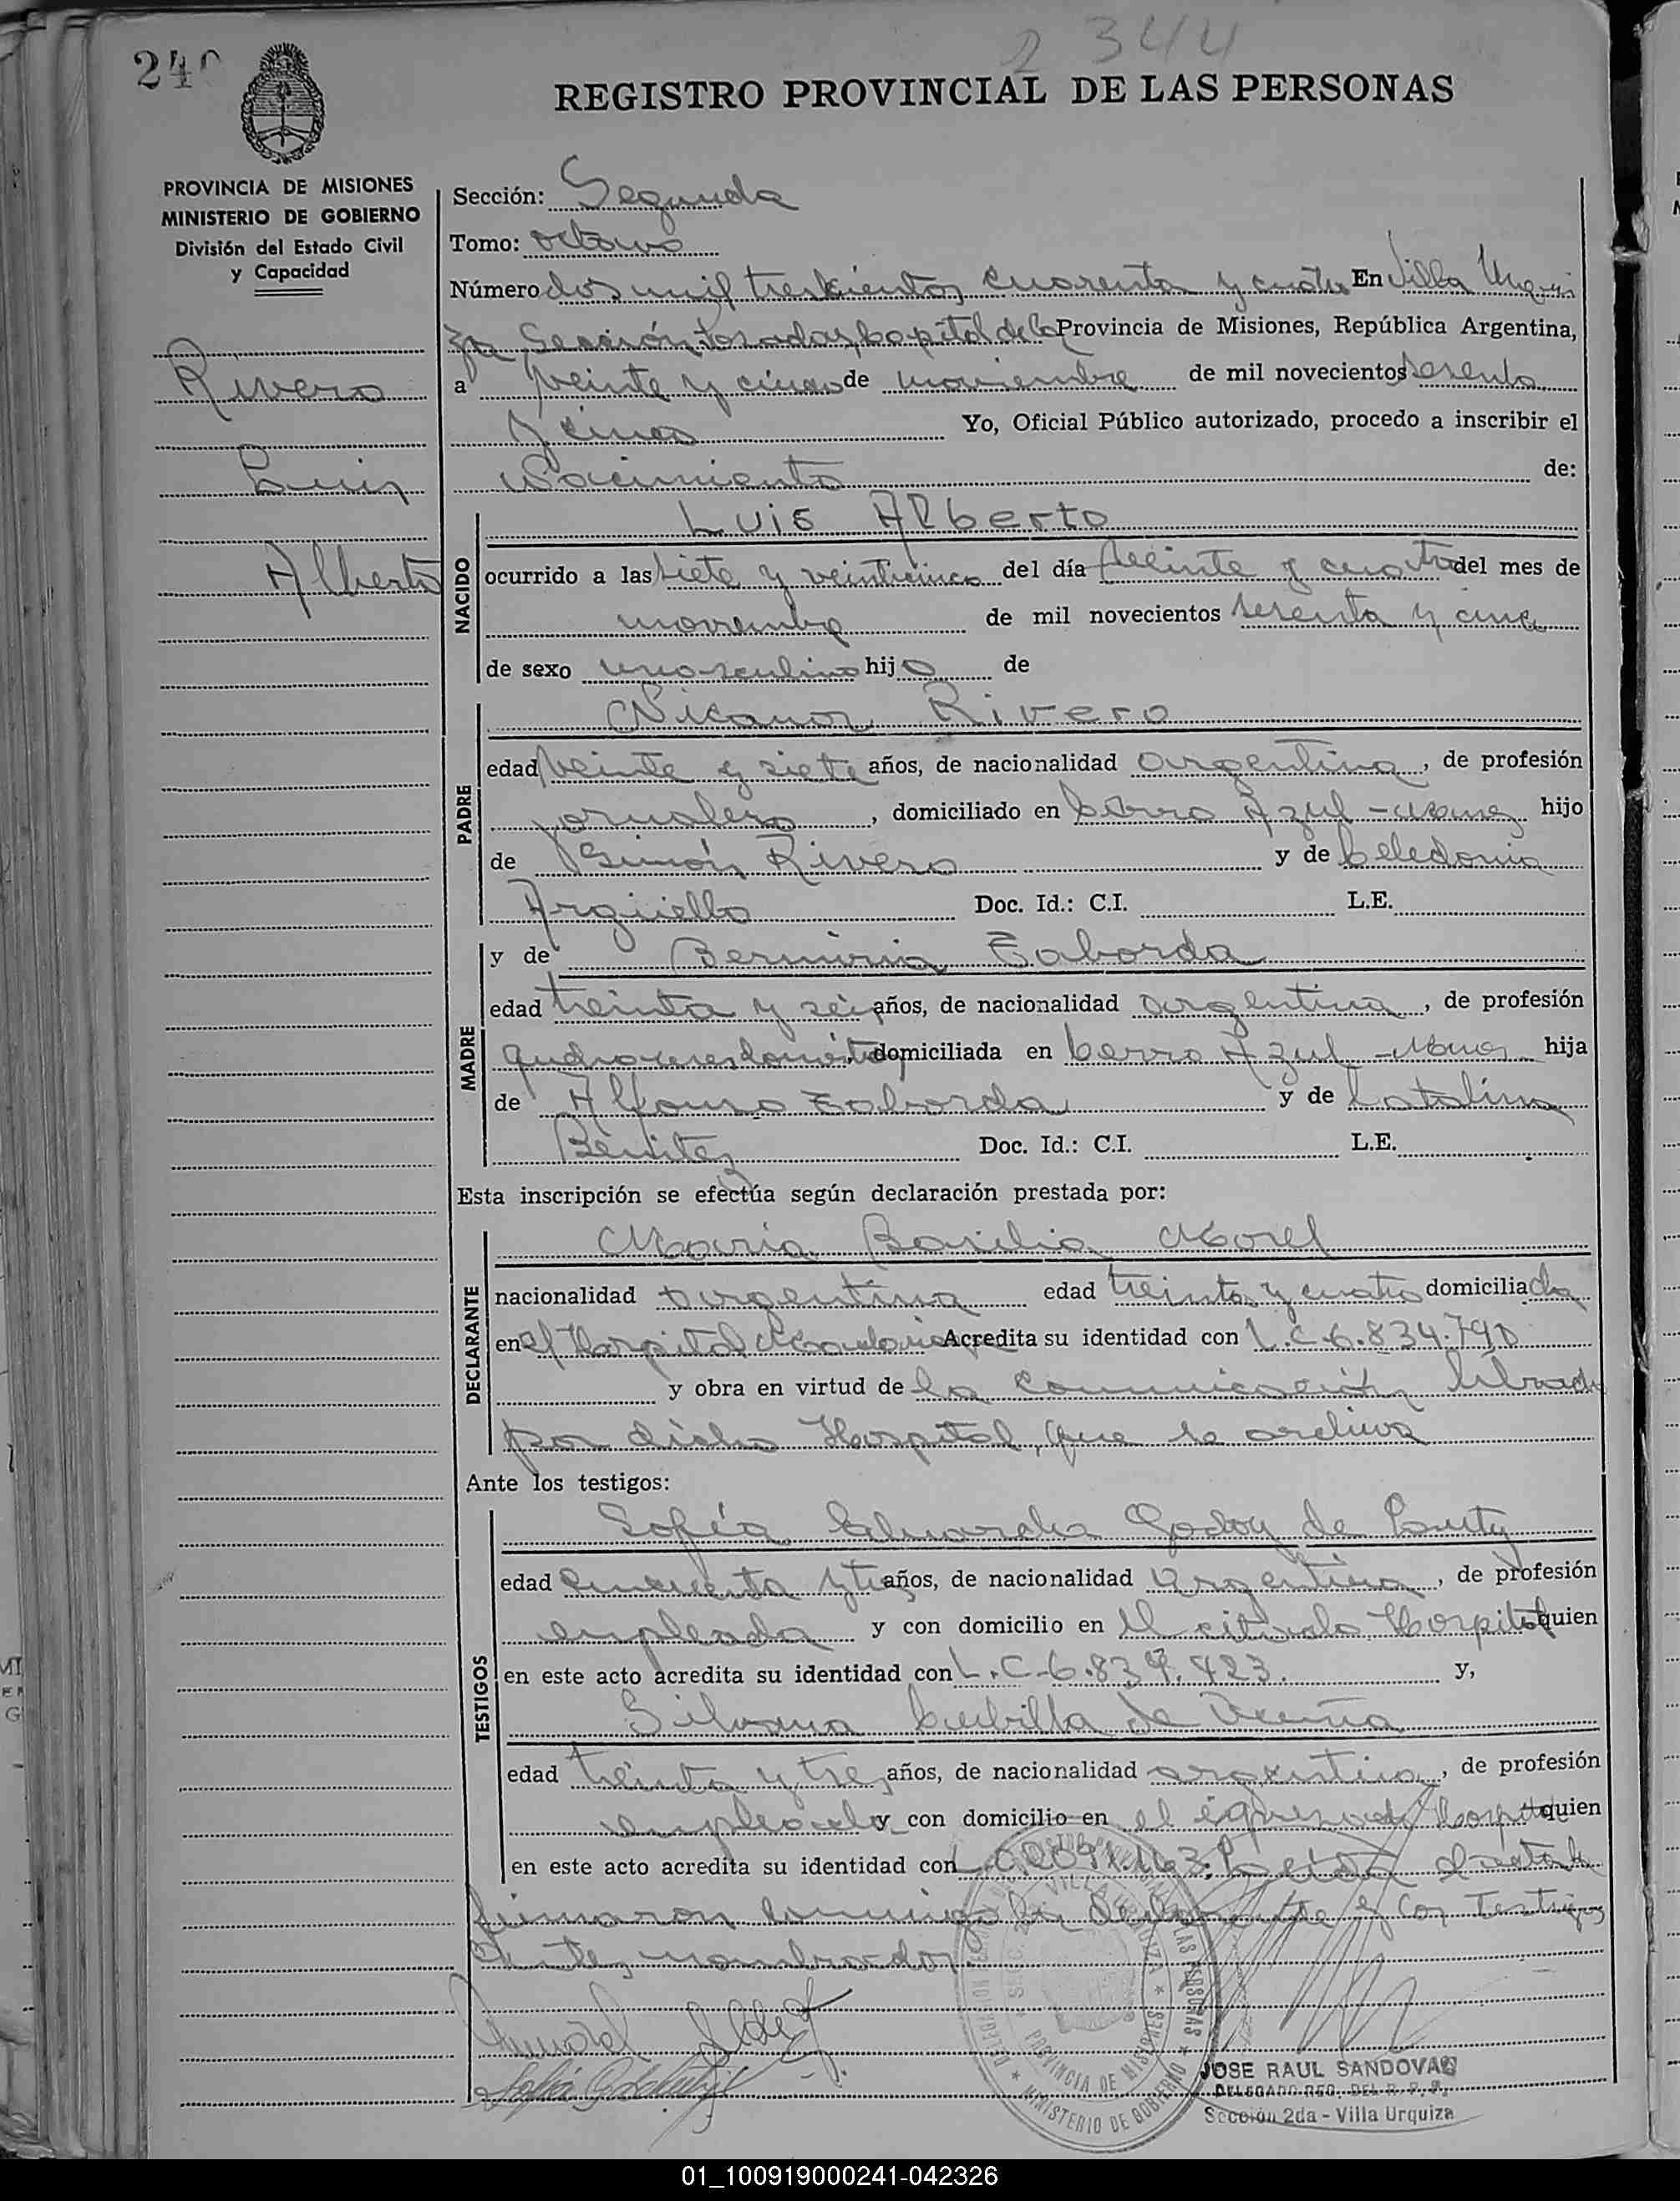 2 344
240
REGISTRO PROVINCIAL DE LAS PERSONAS
PROVINCIA DE MISIONES
MINISTERIO DE GOBIERNO
División del Estado Civil
y Capacidad
Rivero
Luis
Alberto
Sección: Segunda
Tomo: octavo
Número dos mil trescientos cuarenta y cuatro En Villa Urqui
za Sección Posadas, Capital de la Provincia de Misiones, República Argentina,
a veinte y cinco de noviembre de mil novecientos sesenta
y cinco Yo, Oficial Público autorizado, procedo a inscribir el
Nacimiento de:
NACIDO
Luis Alberto
ocurrido a las siete y veinticinco del día veinte y cuatro del mes de
noviembre de mil novecientos sesenta y cinco
de sexo masculino hijo de
PADRE
Nicanor Rivero
edad veinte y siete años, de nacionalidad argentina, de profesión
jornalero, domiciliado en Cerro Azul - Mnes hijo
de Simón Rivero y de Celedonia
Argüello Doc. Id.: C.I. L.E.
MADRE
y de Taborda
edad treinta y seis años, de nacionalidad argentina, de profesión
domiciliada en Cerro Azul - Mnes hija
de Alfonso Taborda y de Catalina
Benitez Doc. Id.: C.I. L.E.
Esta inscripción se efectúa según declaración prestada por:
DECLARANTE
María Basilia Morel
nacionalidad argentina edad treinta y cuatro domiciliada
en el Hospital Madariaga Acredita su identidad con L.C.6.834.790
y obra en virtud de la comunicación librada
por dicho Hospital, que se archiva
Ante los testigos:
TESTIGOS
Sofía Eduarda Godoy de
edad cincuenta y tres años, de nacionalidad argentina, de profesión
empleada y con domicilio en el citado Hospital quien
en este acto acredita su identidad con L.C.6.839.423. y,
Silvana Cubilla de Acuña
edad treinta y tres años, de nacionalidad argentina, de profesión
empleada y con domicilio en el expresado Hospital quien
en este acto acredita su identidad con L.C. Leida el acta la
firmaron conmigo la declarante y los testigos
antes nombrados.
VILLA URQUIZA
PROVINCIA DE MISIONES
MINISTERIO DE GOBIERNO
JOSE RAUL SANDOVAL
DELEGADO REG. DEL R. P. P.
Sección 2da - Villa Urquiza
01_100919000241-042326